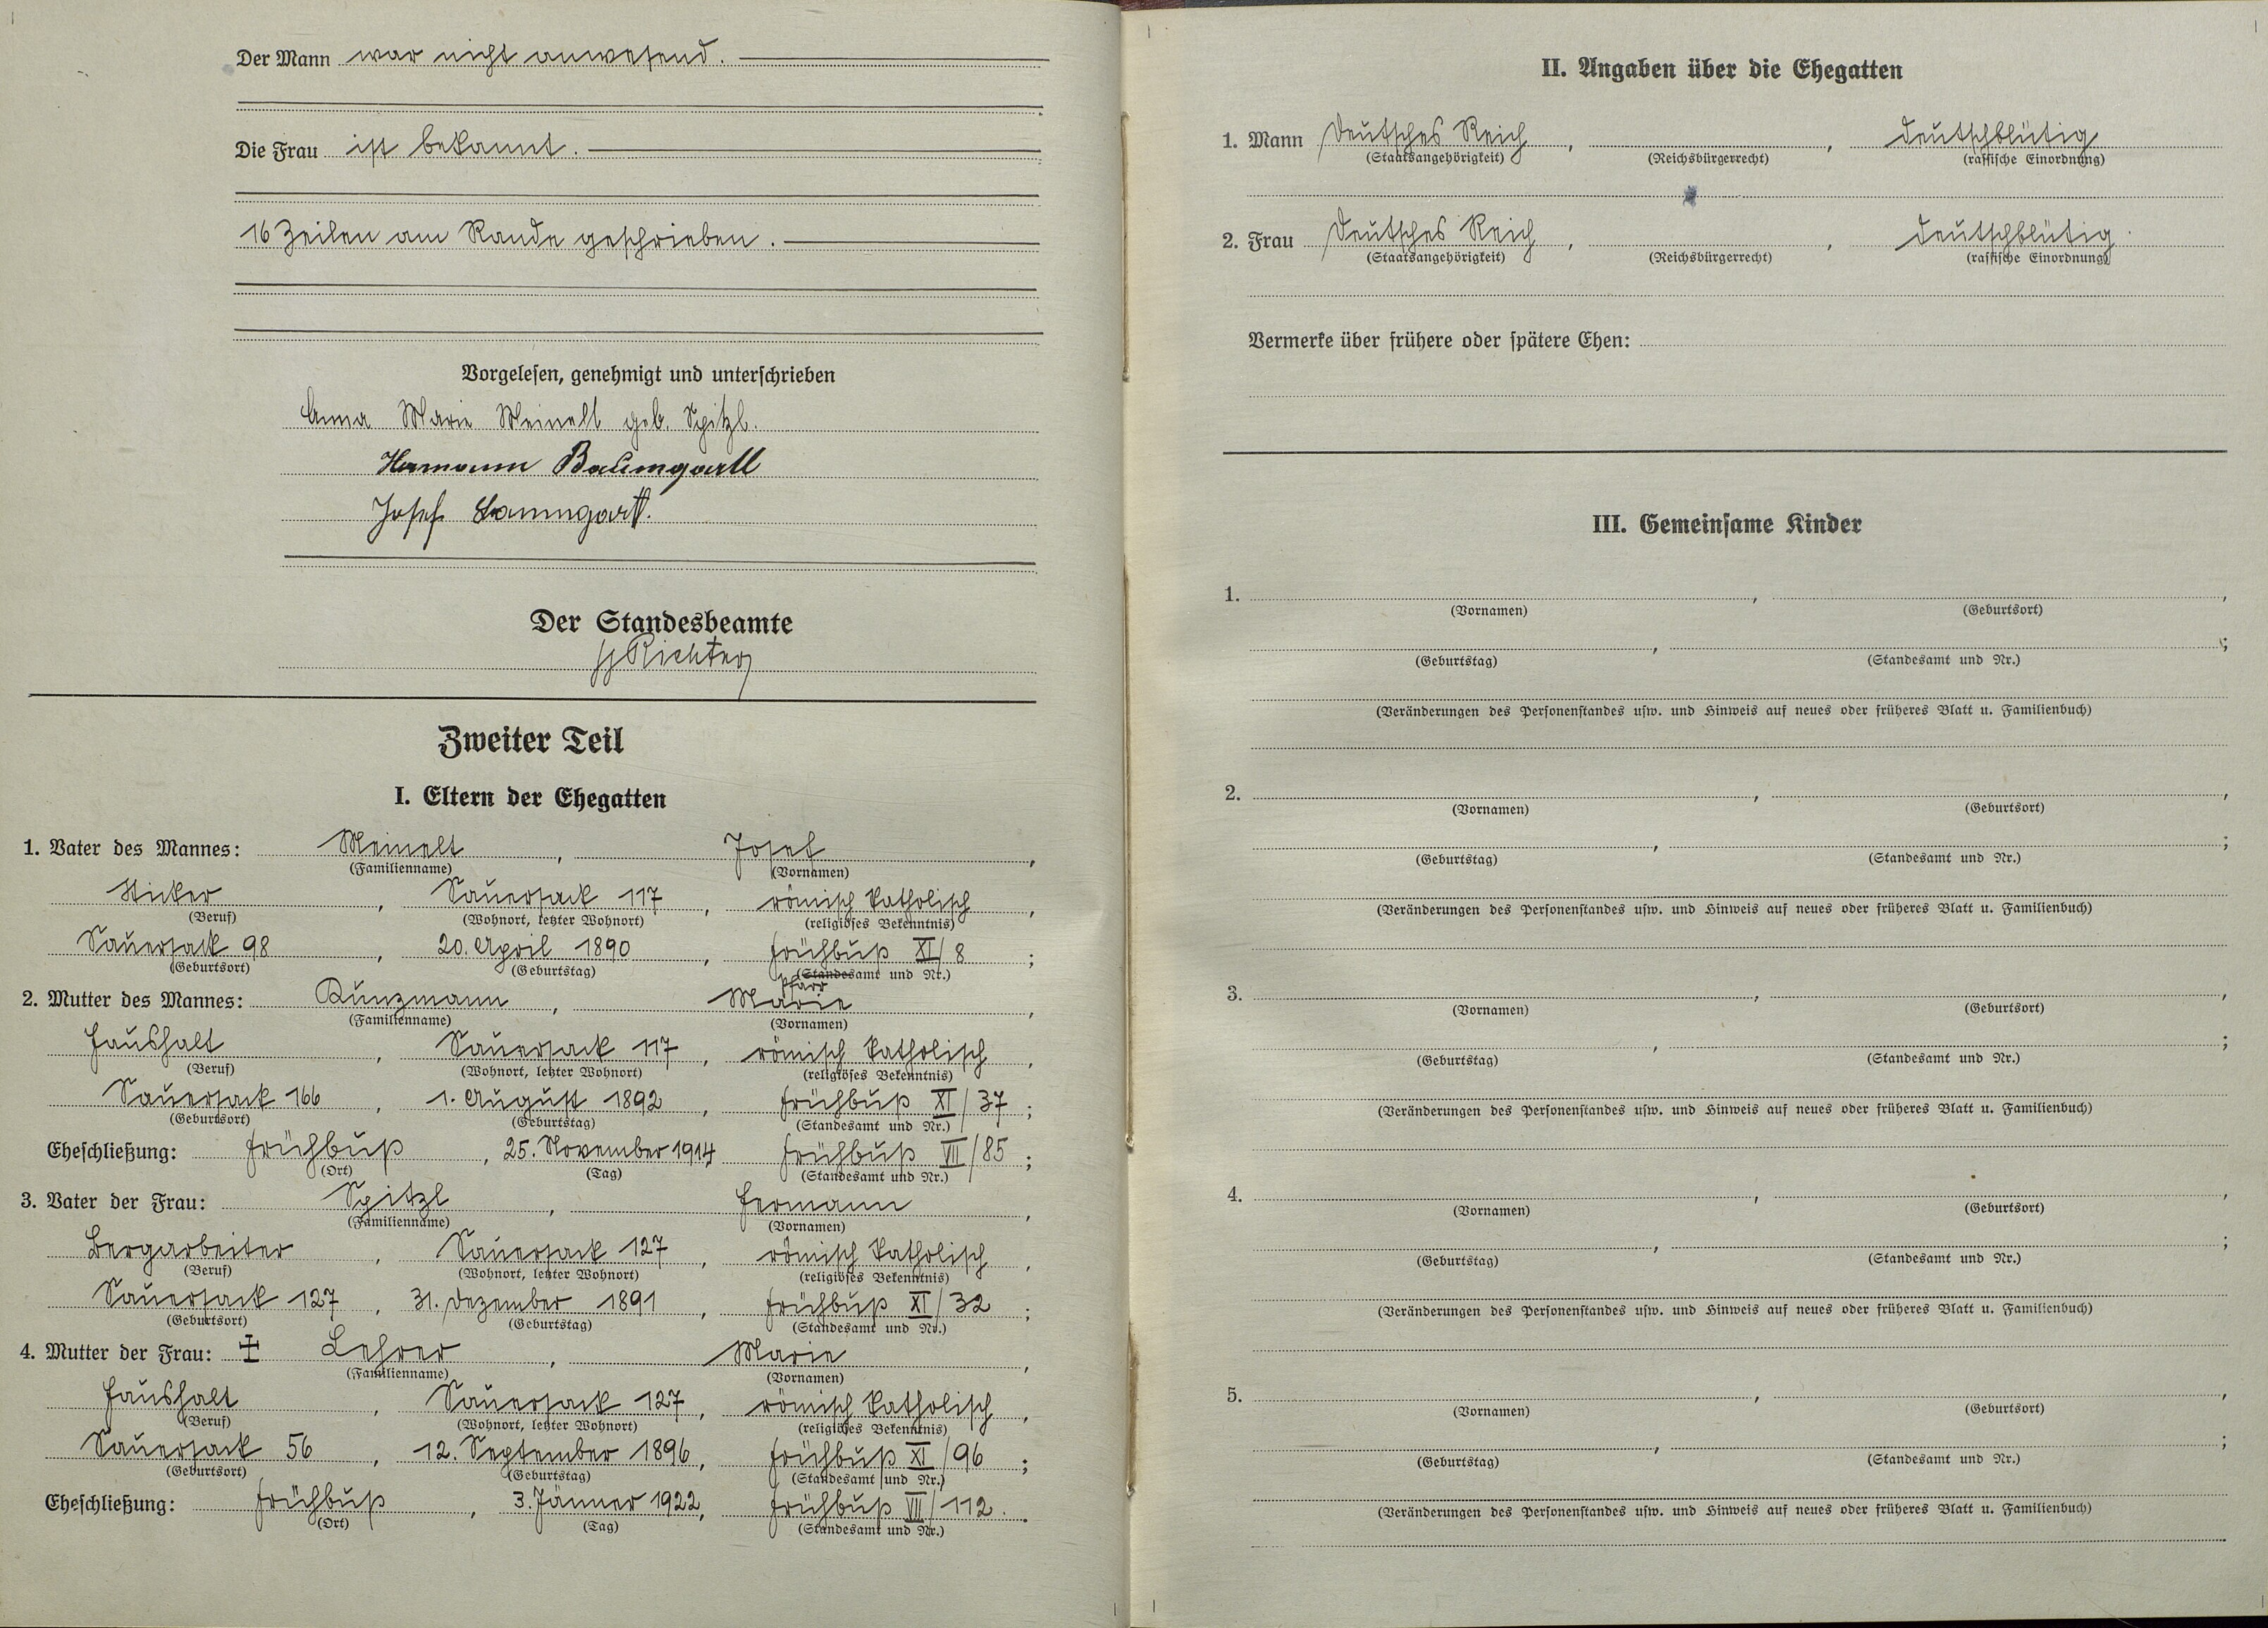 Der Mann war nicht anwesend.
Die Frau ist bekannt.
16 Zeilen am Rande geschrieben.
Vorgelesen, genehmigt und unterschrieben
Anna Marie Meinelt geb. Spitzl.
Hermann Baumgartl
Josef Baumgartl.
Der Standesbeamte
Richter
Zweiter Teil
I. Eltern der Ehegatten
1. Vater des Mannes: Meinelt, Josef,
(Familienname) (Vornamen)
Sticker, Sauersack 117, römisch katholisch,
(Beruf) (Wohnort, letzter Wohnort) (religiöses Bekenntnis)
Sauersack 98, 20. April 1890, Frühbuß XI/8;
(Geburtsort) (Geburtstag) (Standesamt und Nr.)
Pfarr
2. Mutter des Mannes: Kunzmann, Marie,
(Familienname) (Vornamen)
Haushalt, Sauersack 117, römisch katholisch,
(Beruf) (Wohnort, letzter Wohnort) (religiöses Bekenntnis)
Sauersack 166, 1. August 1892, Frühbuß XI/37;
(Geburtsort) (Geburtstag) (Standesamt und Nr.)
Eheschließung: Frühbuß, 25. November 1914 Frühbuß VII/85;
(Ort) (Tag) (Standesamt und Nr.)
3. Vater der Frau: Spitzl, Hermann,
(Familienname) (Vornamen)
Bergarbeiter, Sauersack 127, römisch katholisch,
(Beruf) (Wohnort, letzter Wohnort) (religiöses Bekenntnis)
Sauersack 127, 31. Dezember 1891, Frühbuß XI/32;
(Geburtsort) (Geburtstag) (Standesamt und Nr.)
4. Mutter der Frau: ‡ Lehrer, Marie,
(Familienname) (Vornamen)
Haushalt, Sauersack 127, römisch katholisch,
(Beruf) (Wohnort, letzter Wohnort) (religiöses Bekenntnis)
Sauersack 56, 12. September 1896, Frühbuß XI/96;
(Geburtsort) (Geburtstag) (Standesamt und Nr.)
Eheschließung: Frühbuß, 3. Jänner 1922, Frühbuß VII/112.
(Ort) (Tag) (Standesamt und Nr.)
II. Angaben über die Ehegatten
1. Mann Deutsches Reich, , deutschblütig
(Staatsangehörigkeit) (Reichsbürgerrecht) (rassische Einordnung)
2. Frau Deutsches Reich, , deutschblütig.
(Staatsangehörigkeit) (Reichsbürgerrecht) (rassische Einordnung)
Vermerke über frühere oder spätere Ehen:
III. Gemeinsame Kinder
1. , ,
(Vornamen) (Geburtsort)
, ;
(Geburtstag) (Standesamt und Nr.)
(Veränderungen des Personenstandes usw. und Hinweis auf neues oder früheres Blatt u. Familienbuch)
2. , ,
(Vornamen) (Geburtsort)
, ;
(Geburtstag) (Standesamt und Nr.)
(Veränderungen des Personenstandes usw. und Hinweis auf neues oder früheres Blatt u. Familienbuch)
3. , ,
(Vornamen) (Geburtsort)
, ;
(Geburtstag) (Standesamt und Nr.)
(Veränderungen des Personenstandes usw. und Hinweis auf neues oder früheres Blatt u. Familienbuch)
4. , ,
(Vornamen) (Geburtsort)
, ;
(Geburtstag) (Standesamt und Nr.)
(Veränderungen des Personenstandes usw. und Hinweis auf neues oder früheres Blatt u. Familienbuch)
5. , ,
(Vornamen) (Geburtsort)
, ;
(Geburtstag) (Standesamt und Nr.)
(Veränderungen des Personenstandes usw. und Hinweis auf neues oder früheres Blatt u. Familienbuch)